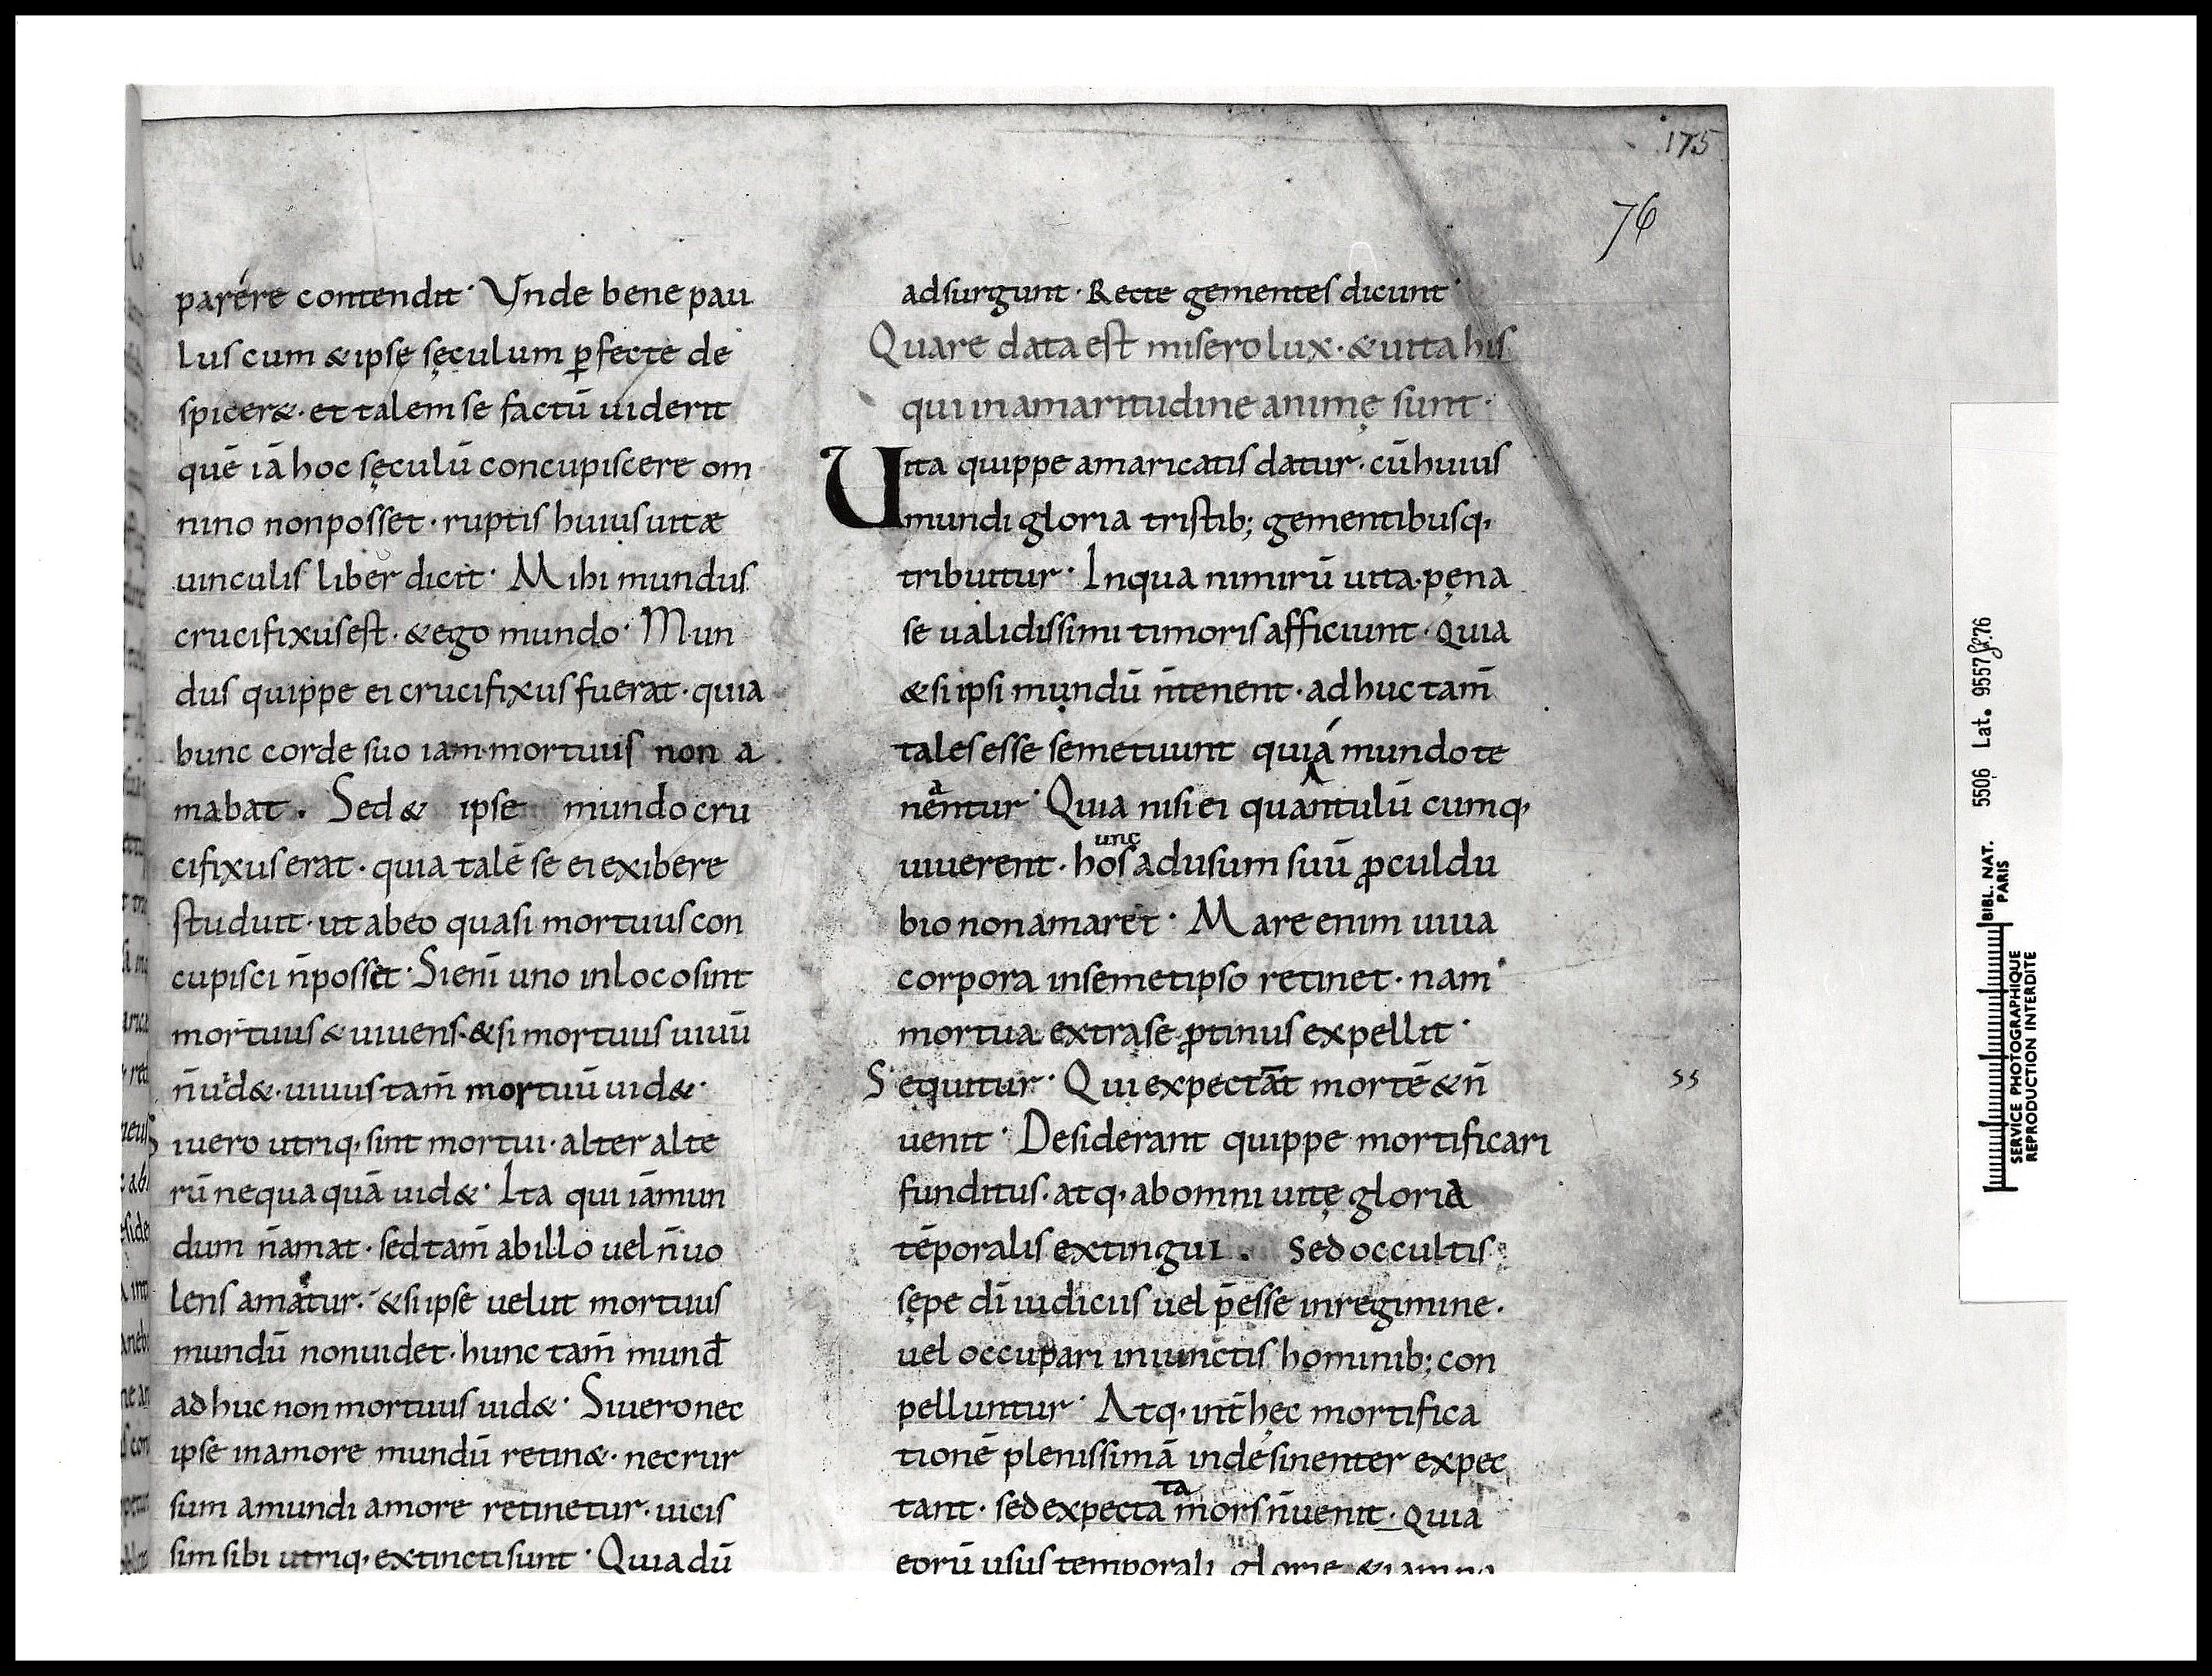 175
76
parére contendit· Unde bene pau
lus cum & ipsę sęculum ꝑfecte de
spicer&· et talem se factū uiderit
quē iā hoc sęculū concupiscere om
nino non posset· ruptis huius uitæ
uinculis liber dicit· Mihi mundus
crucifixus est· & ego mundo· Mun
dus quippe ei crucifixus fuerat· quia
hunc corde suo iam mortuus non a
mabat. Sed & ipse mundo cru
cifixus erat· quia talē se ei exibere
studuit· ut ab eo quasi mortuus con
cupisci n̄ posset· Si eni̅ uno in loco sint
mortuus & uiuens· & si mortuus uiuū
n̄ uid&· uiuus tam̄ mortuū uid&·
Si uero utriq· sint mortui· alter alte
rū nequaquā uid&· Ita qui iā mun
dum n̄ amat· sed tam̄ ab illo uel n̄ uo
lens amatur· & si ipse uelut mortuus
mundū non uidet· hunc tam̄ mund̄
adhuc non mortuus uid&· Si uero nec
ipse in amore mundū retin&· nec rur
sum a mundi amore retinetur· uicis
sim sibi utriq· extincti sunt· Quia dū
adsurgunt· Recte gementes dicunt·
Quare data est misero lux· & uita his
qui in amaritudine animę sunt·
Uita quippe amaricatis datur· cū huius
mundi gloria tristib; gementibusq·
tribuitur· In qua nimirū uita pęna
se ualidissimi timoris afficiunt· Quia
& si ipsi mundū n̄ tenent· adhuc tam̄
tales esse se metuunt qui á mundo te
neantur· Quia nisi ei quantulū cumq·
uiuerent· hos unc ad usum suū ꝓculdu
bio non amaret· Mare enim uiua
corpora in semetipso retinet· nam
mortua extra se ꝓtinus expellit·
Sequitur· Qui expectāt mortē & n̄
55
uenit· Desiderant quippe mortificari
funditus· atq· ab omni uitę gloria
tēporalis extingui. Sed occultis
sępe dī iudiciis uel p̄esse in regimine·
uel occupari iniunctis hominib; con
pelluntur· Atq· int̄ hęc mortifica
tionē plenissimā indesinenter expec
tant· sed expectata mors n̄ uenit· Quia
eorū usus temporali glorię
5506 Lat. 9557 f. 76
BIBL. NAT.
PARIS
SERVICE PHOTOGRAPHIQUE
REPRODUCTION INTERDITE